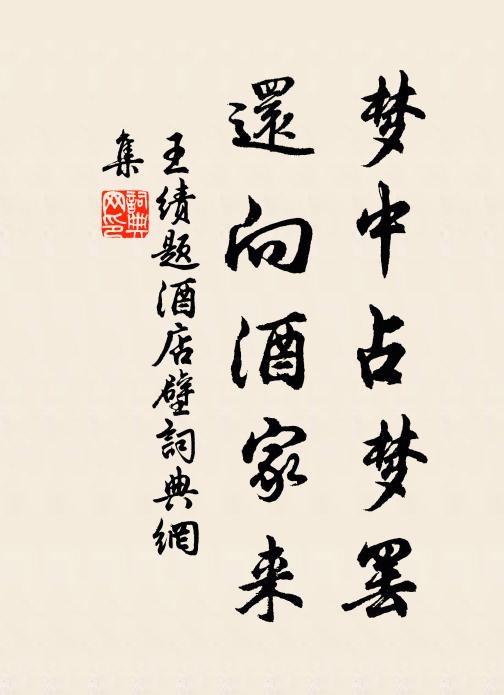 梦中占梦罢
還向酒家来
王绩题酒店壁詞典網
集
詞典
网印